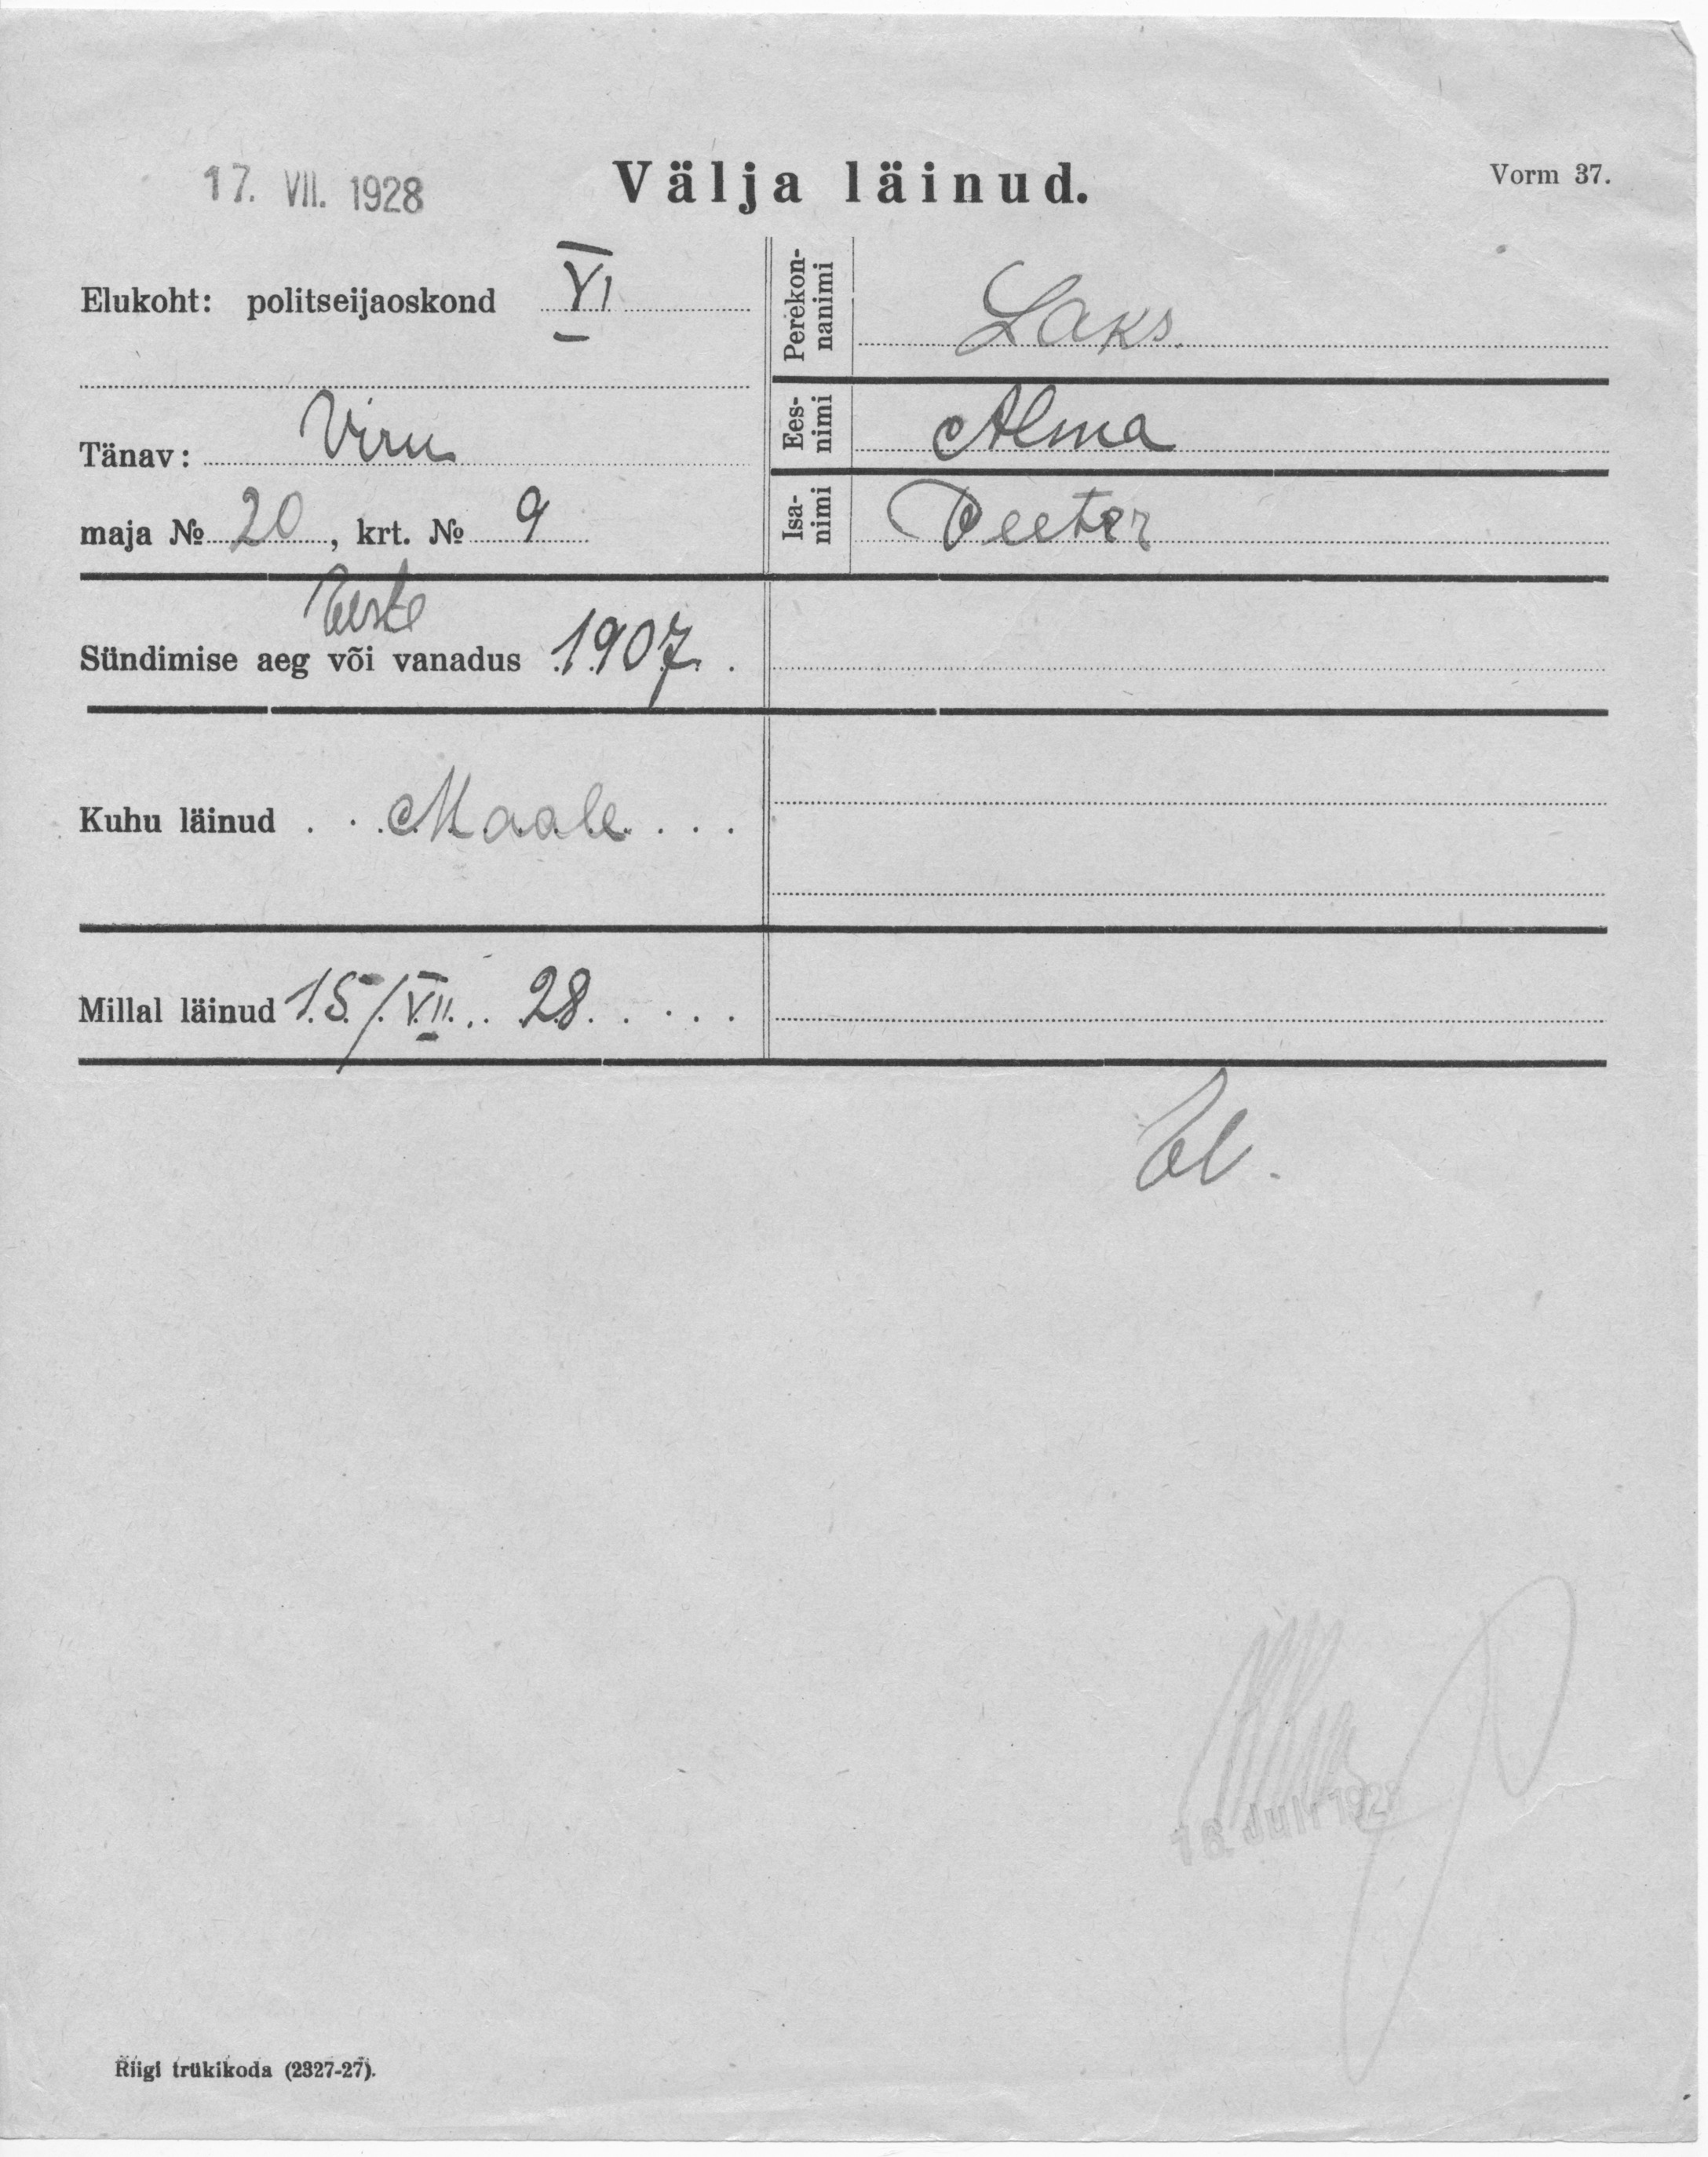 17. VII. 1928
Välja läinud.
Vorm 37.
Elukoht: politseijaoskond VI
Tänav: Viru
maja № 20, krt. № 9
Perekon-
nanimi
Laks.
Ees-
nimi
Alma
Isa-
nimi
Peeter
Sündimise aeg või vanadus 1907.
Kuhu läinud . . Maale . . .
Millal läinud 15/VII. 28. . . . .
Juli 192
Riigi trükikoda (2327-27).